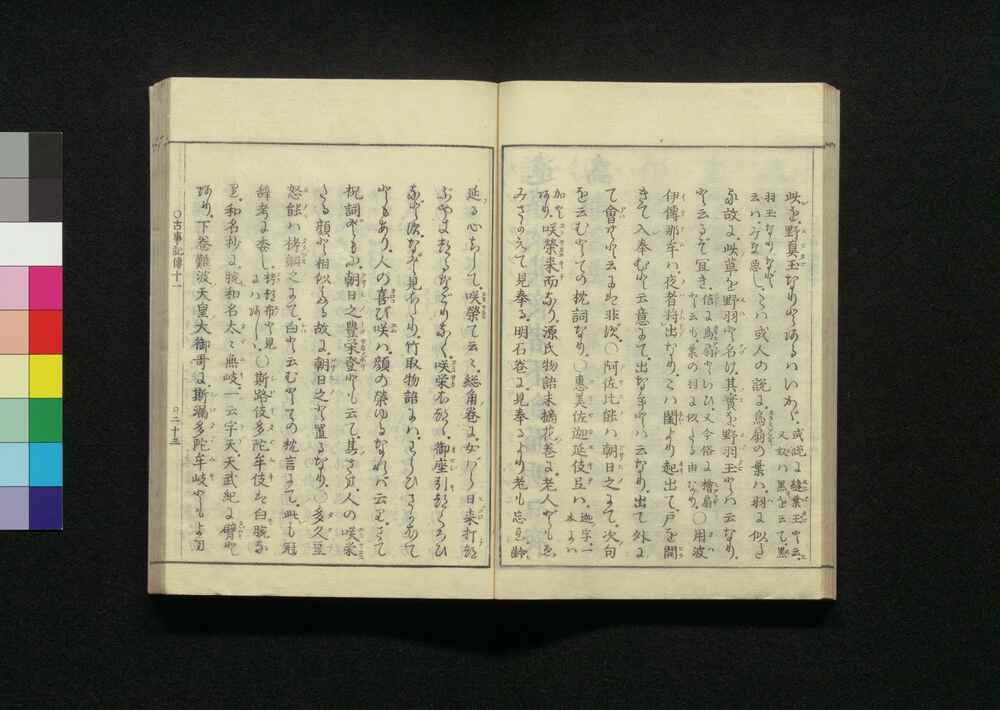 此を野真玉なりとあるはいかゞ
云ハみな悪し、こハ或人の説に、烏扇の葉ハ、羽に似た
る故に、此草を野羽と名け、其實を野羽玉とハ云なり、
と云るぞ宜き、
俗に烏扇といひ、又今俗に檜扇
と云も、葉の羽に似たる由なり、
○用波
伊傳那牟ハ、夜者将出なり、こハ閨より起出て、戸を開
きて入奉むと云意にて、出なむとハ云なり、出て外に
て會むと云にハ非ず、○阿佐比能ハ朝日之にて、次句
を云むとての枕詞なり、○恵美佐迦延伎弖ハ、
迦字、一
本にハ
加と
あり、咲榮来而なり、源氏物語末摘花巻に、老人ども、
みさかえて見奉る、明石巻に見奉るより老も忘れ齢
延る心ちして、咲榮て云々、総角巻に、女ばら日来打
なごりなく、咲榮
など、竹取物語にハ、わらひさかえて
ともあり、人の喜び咲ハ、顔の榮ゆるなれバ云り、さて
祝詞どもに、朝日之豊榮登とも云て、其さま人の咲榮
たる顔と相似たる故に、朝日之と置るなり、○多久豆
怒能ハ栲綱之にて、白と云むとての枕言にて、此も冠
辞考に委し、
○斯路伎多陀牟伎ハ白腕な
り、和名抄に、腕和名太々無岐、一云宇天、天武紀に臂と
あり、下巻難波天皇大御哥に、斯漏多陀牟岐ともよみ
○古事記傳十一
○二十五